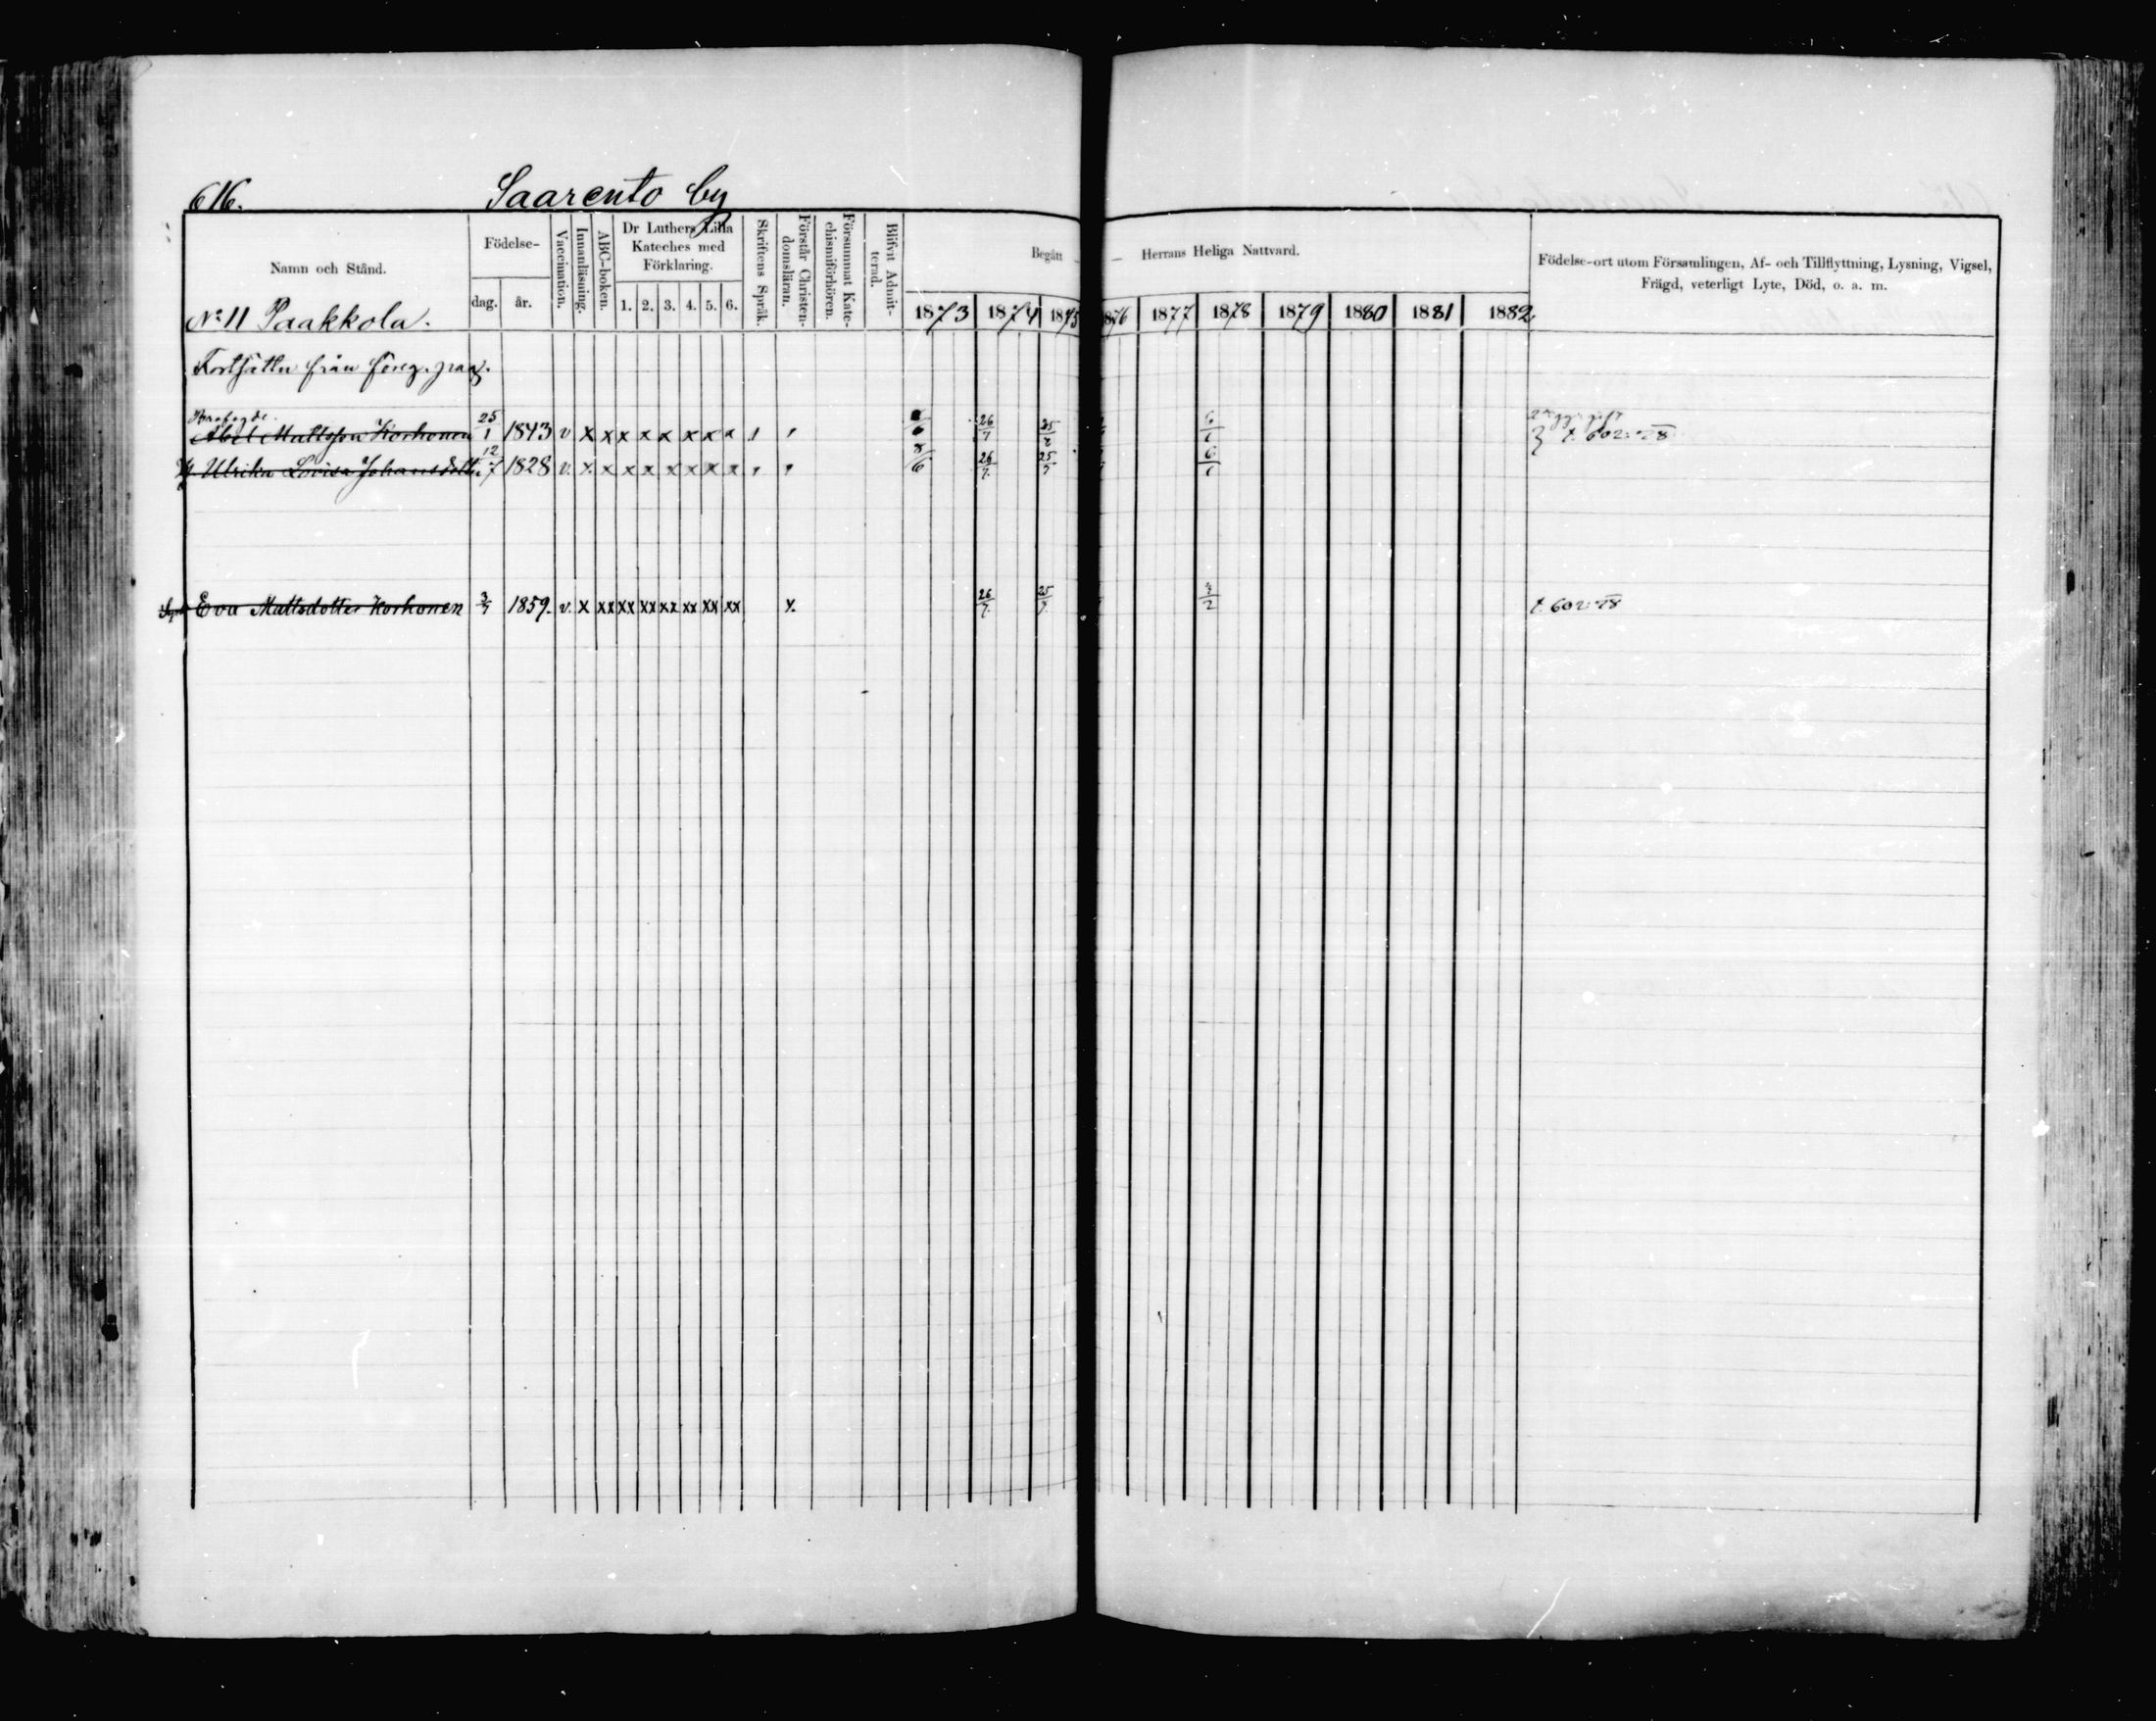 616. Saarento by
Namn och Stånd.
Födelse-
dag. år.
Vaccination.
Innanläsning.
ABC-boken.
Dr Luthers Lilla
Kateches med
Förklaring.
1. 2. 3. 4. 5. 6.
Skriftens Språk.
Förstår Christen-
domsläran.
Försummat Kate-
chismiförhören.
Blifvit Admit-
terad.
Begått — — Herrans Heliga Nattvard.
1873 1874 1875 1876 1877 1878 1879 1880 1881 1882
Födelse-ort utom Församlingen, Af- och Tillflyttning, Lysning, Vigsel,
Frägd, veterligt Lyte, Död, o. a. m.
No 11 Paakkola.
från föreg. pag.
Abel Mattsson Korhonen 25/1 1843 v x x x x x x x x 6 26/7 25 6 t. 602. 78
H. Ulrika Lovisa Johansdotter 12/7 1828 v. x x x x x x x x 8/6 26/7. 25 6
Eva Mattsdotter Korhonen 3/7 1859. v. x xx xx xx xx xx xx xx x. 26/7. 25/7. 3/2 t. 602. 78